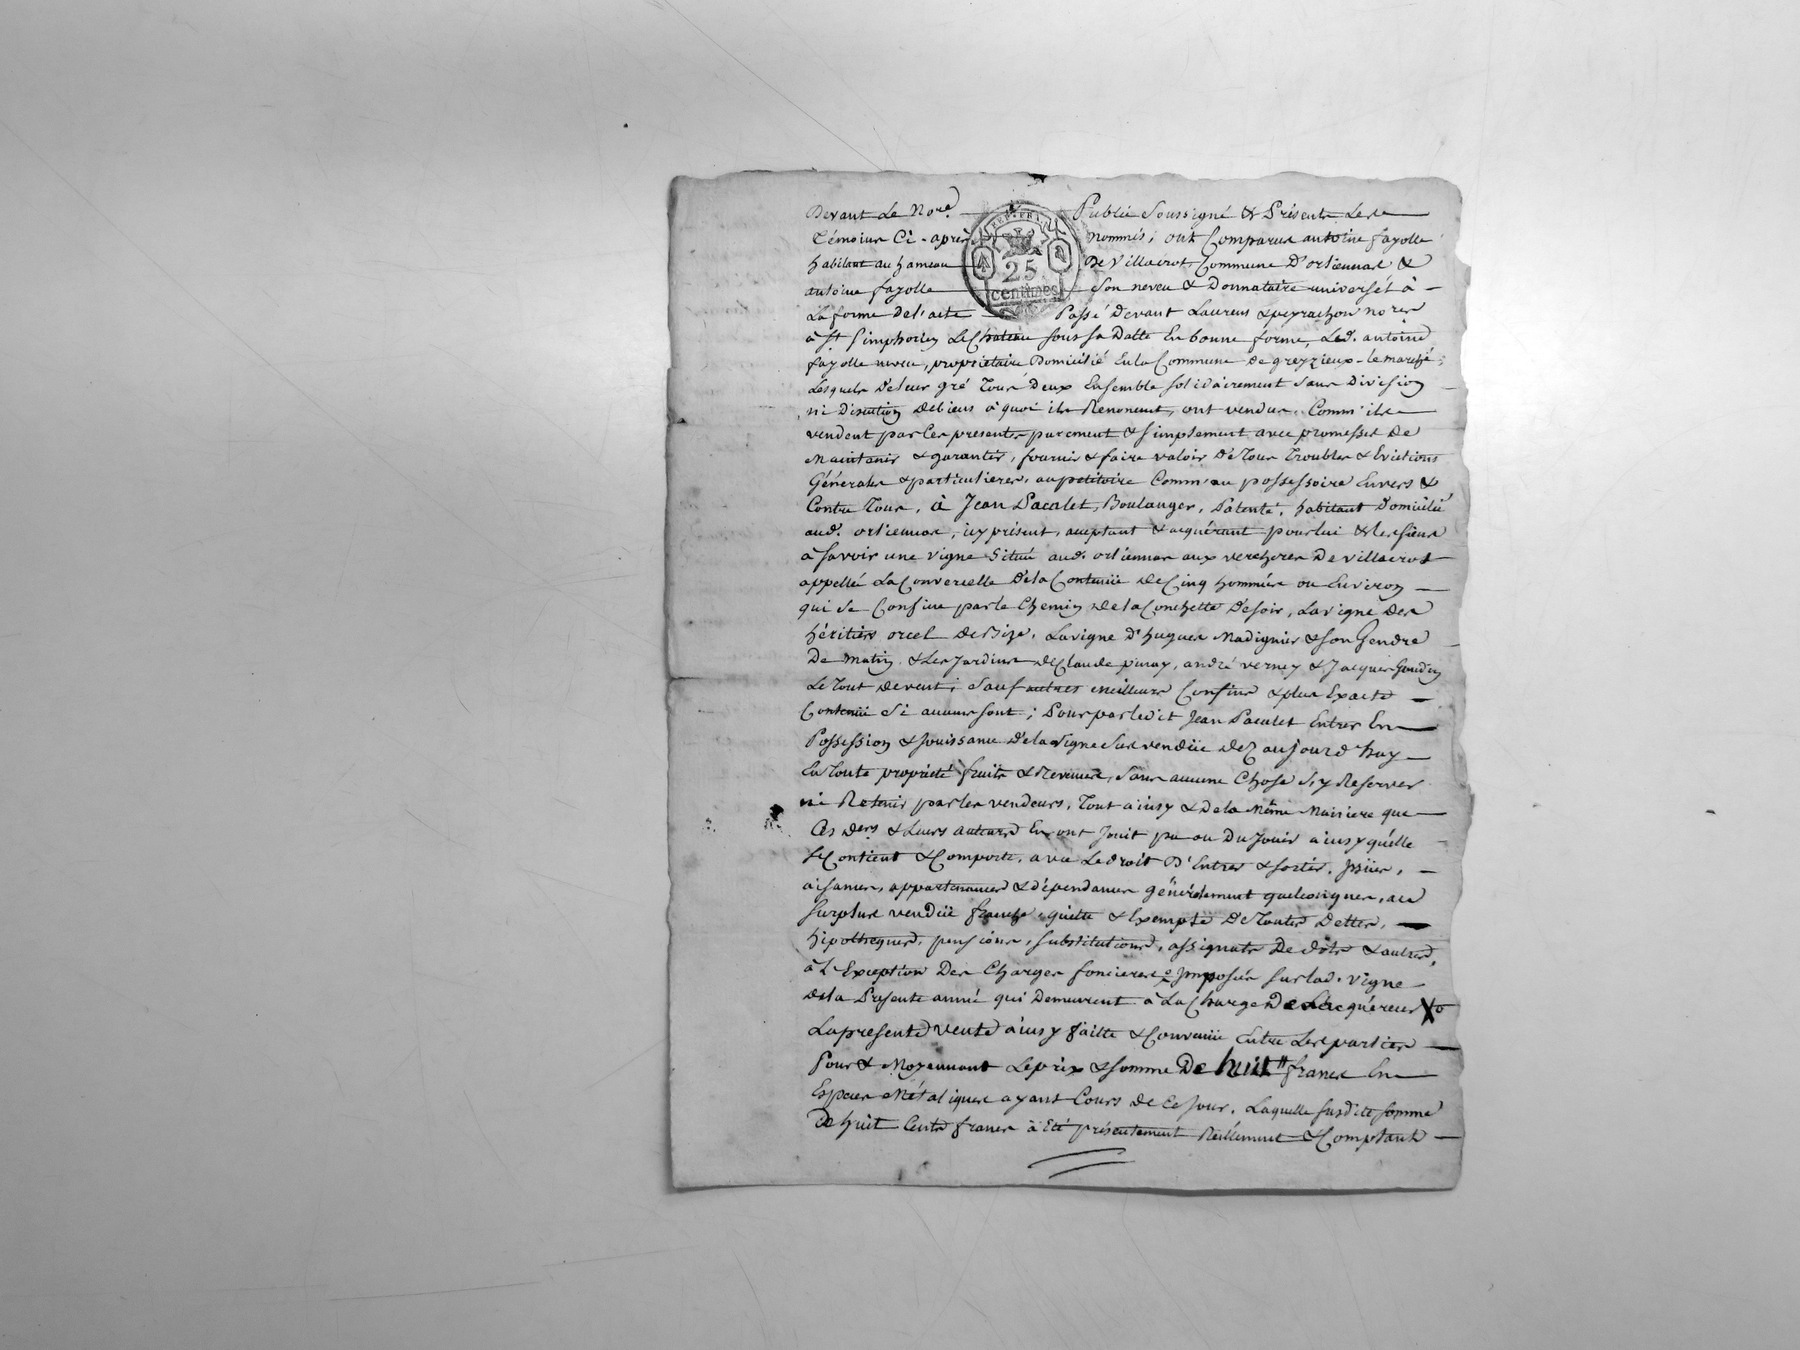 Devant Le No.re Public Soussigné & Présents Les
Témoins Ci-après nommés, ont Comparus antoine fayolle
habitant au hameau De Villacrot, Commune D'orliennas &
antoine fayolle Son neveu & Donnataire universel à
La forme de l'acte Passé Devant Laurens & peyrachon no.res
à St Simphorien Le Chateau sous sa Datte En bonne forme, Led. antoine
fayolle neveu, propriétaire Domicilié En la Commune de greyzieux-le marché;
Lesquels De leur gré Tous Deux Ensemble solidairement Sans Division
ni Discution De biens à quoi ils Renoncent, ont vendus Comm'ils
vendent par Ces presentes purement & simplement avec promesses De
Maintenir & garantir, fournir & faire valoir De Tous Troubles & Evictions
Générales & particulieres, au petitoire Comm'au possessoire Envers &
Contre Tous, à Jean Pacalet, Boulanger, Patenté, habitant Domicilié
aud. orliennas, icy présent, acceptant & acquérant pour lui & les siens
à savoir une vigne Située aud. orliennas aux vercheres De villacrot
appellée La Converselle De la Contenüe de Cinq hommées ou Environ
qui se Confine par le Chemin de la Conchette De soir, La vigne Des
héritiers orcel de Bize, La vigne D'hugues Madignier & son Gendre
De matin & Les Jardins de Claude puray, andré verney & Jacques
Le Tout De vent; Sauf autres meilleurs Confins & plus Exacte
Contenüe Si aucuns sont; Pour par ledit Jean Pacalet Entrer En
Possession & Jouissance De la Vigne Sus vendüe dez aujourd'huy
En Toute propriété fruits & Revenus, Sans aucune Chose s'y Reserver
ni Retenir par les vendeurs, Tout ainsy & de la Même Maniere que
Ces ders & Leurs auteurs En ont Jouit pu ou Du Jouir ainsy qu'elle
se Contient & Comporte, avec Le droit D'Entrer & sortir,
aisances, appartenances & dépendances généralement quelconques, au
surplus vendüe franche, quitte & Exempte De Toutes Dettes,
hipotheques, pensions, substitutions, assignats De dots & autres,
à L'Exception Des Charges foncieres Imposées sur lad. vigne
de la Présente année qui Demeurent à La Charge De L'acquéreur
La presente vente ainsy faitte & Convenüe Entre Les parties
Pour & Moyennant Le prix & somme De huit " francs En
Especes Métaliques ayant Cours de Ce Jour, Laquelle susdite somme
De huit Cents francs à Eté présentement Réellement & Comptant
REP. FRA.
25
centimes